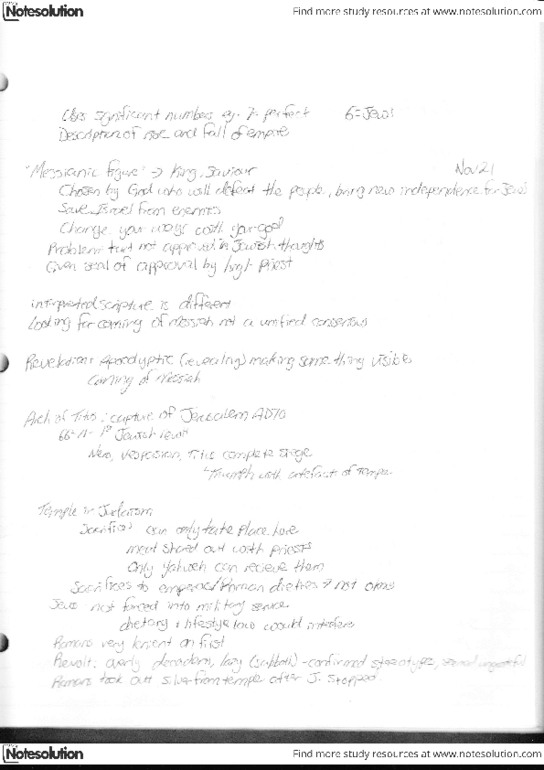 Notesolution
Find more study resources at www.notesolution.com
significant numbers eg. 7 = perfect 6 = Jews
Description of rise and fall of empire
"Messianic figure" → King, Saviour Nov 21
Chosen by God who will defeat the people, bring new independence for Jews
Save Israel from enemies
Change your ways with your god
Problem that not approved in Jewish thoughts
Given seal of approval by high priest
interpreted scripture is different
Looking for coming of messiah not a unified consensus
Revelation: Apocalyptic (revealing) making something visible
coming of messiah
Arch of Titus: capture of Jerusalem AD70
1st Jewish revolt
Nero, Vespasian, Titus complete siege
Triumph with artefact of temple
Temple in Judaism
Sacrifices can only take place here
meat shared out with priests
Only Yahweh can recieve them
Sacrifices to emperor/Roman dieties
Jews not forced into military service
dietary + lifestyle law would interfere
Romans very lenient on first
Revolt: lazy (sabbath) - confirmed stereotypes, seemed ungrateful
Romans took out silver from temple after J. stopped
Notesolution
Find more study resources at www.notesolution.com